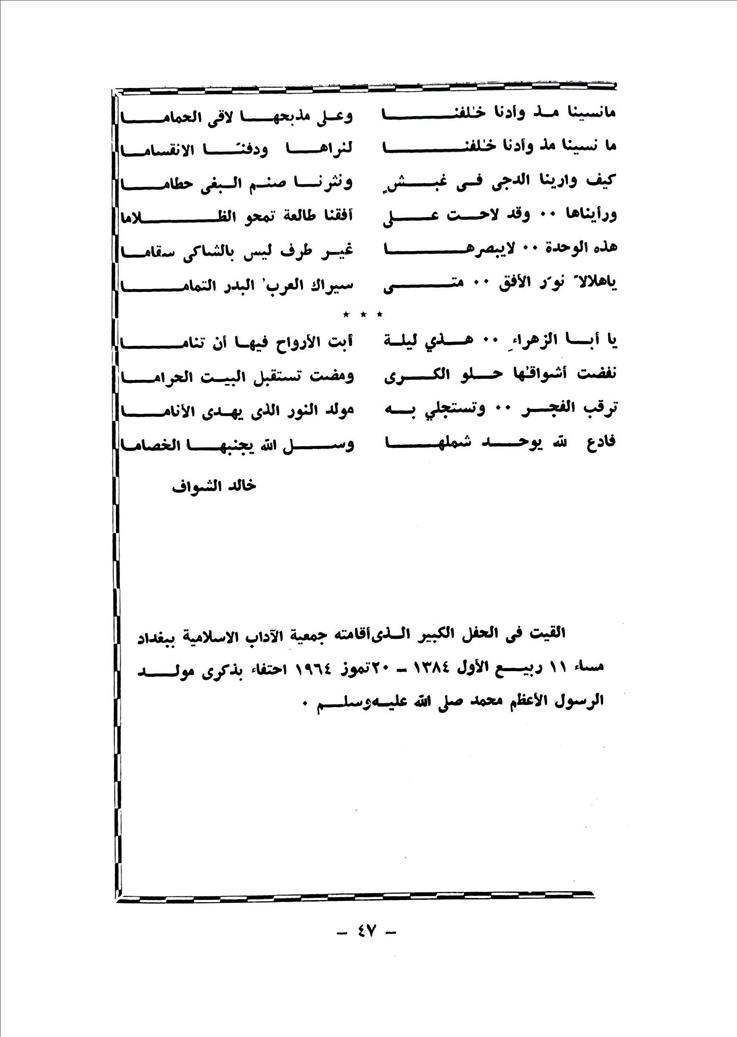 مانسينا مذ وأدنا خلفنا وعلى مذبحها لاقى الحماما
ما نسينا مذ وأدنا خلفنا لنراها ودفنّا الانقساما
كيف وارينا الدجى فى غبش ونثرنا صنم البغى حطاما
ورأيناها ٠٠ وقد لاحت على أفقنا طالعة تمحو الظلاما
هذه الوحدة ٠٠ لايبصرها غير طرف ليس بالشاكى سقاما
ياهلالاً نوّر الأفق ٠٠ متى سيراك العرب البدر التماما
* * *
يا أبا الزهراءِ ٠٠ هذي ليلة أبت الأرواح فيها أن تناما
نفضت أشواقها حلو الكرى ومضت تستقبل البيت الحراما
ترقب الفجر ٠٠ وتستجلي به مولد النور الذى يهدى الأناما
فادع لله يوحد شملها وسل الله يجنبها الخصاما
خالد الشواف
القيت فى الحفل الكبير الذى أقامته جمعية الآداب الاسلامية ببغداد
مساء ١١ ربيع الأول ١٣٨٤ – ٢٠ تموز ١٩٦٤ احتفاء بذكرى مولد
الرسول الأعظم محمد صلى الله عليه وسلم ٠
– ٤٧ –